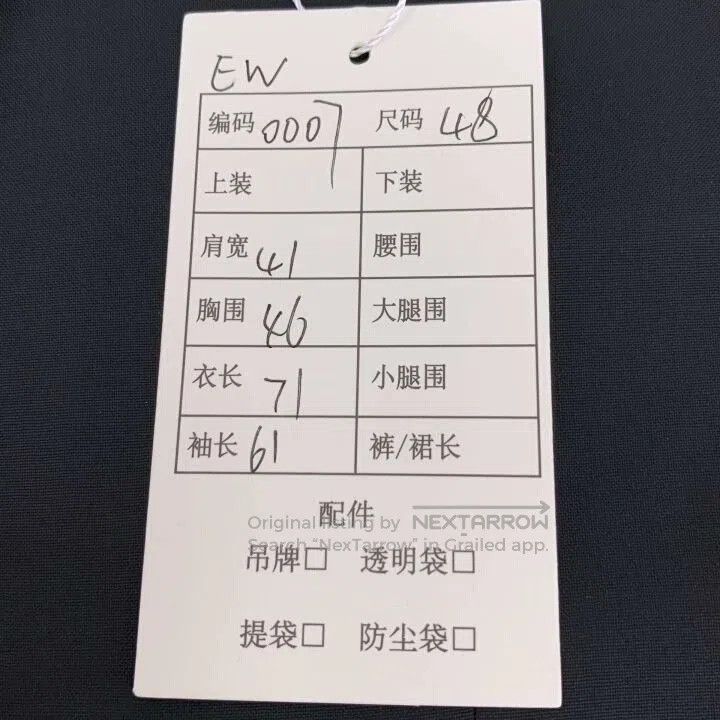 EW
编码 0007 尺码 48
上装 下装
肩宽 41 腰围
胸围 46 大腿围
衣长 71 小腿围
袖长 61 裤/裙长
配件
Original listing by NEXTARROW
Search “NexTarrow” in Grailed app.
吊牌□ 透明袋□
提袋□ 防尘袋□